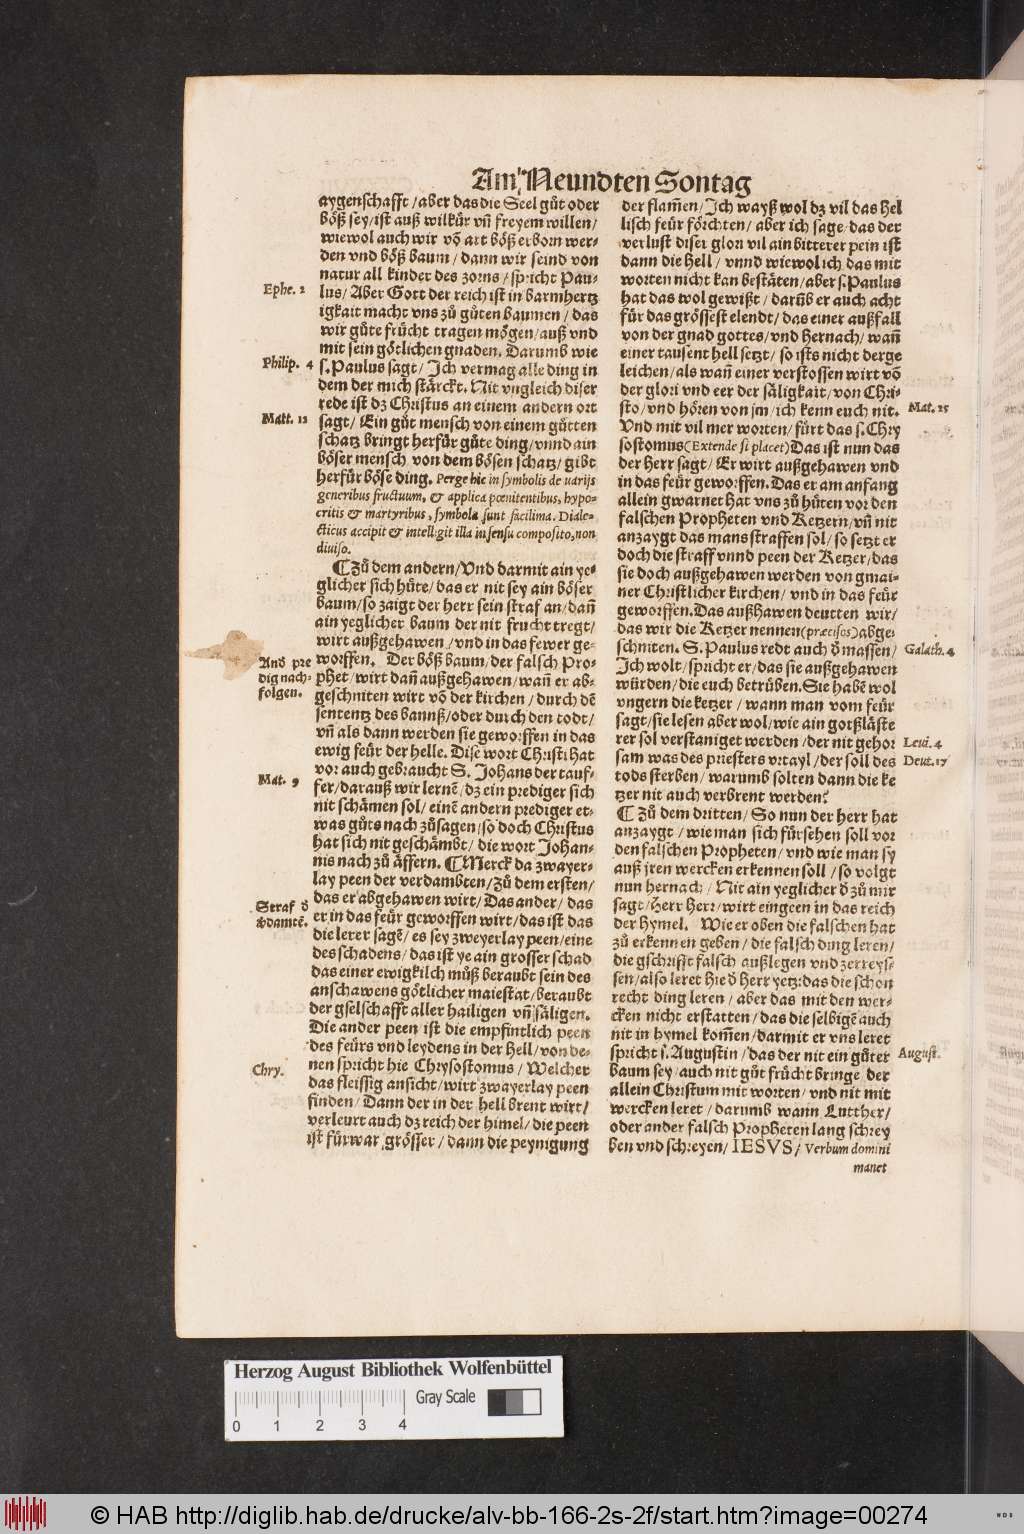 Am Neundten Sontag
aygenschafft/aber das die Seel gůt oder
böß sey/ist auß wilkür vn̄ freyem willen/
wiewol auch wir vō art böß erborn wer-
den vnd böß baum/dann wir seind von
natur all kinder des zorns/spricht Pau-
Ephe. 2
lus/Aber Gott der reich ist in barmhertz
igkait macht vns zů gůten baumen/das
wir gůte frücht tragen mögen/auß vnd
mit sein götlichen gnaden. Darumb wie
Philip. 4
s.Paulus sagt/Ich vermag alle ding in
dem der mich stärckt. Nit vngleich diser
rede ist dz Christus an einem andern ort
Matt. 12
sagt/Ein gůt mensch von einem gůtten
schatz bringt herfür gůte ding/vnnd ain
böser mensch von dem bösen schatz/gibt
herfür böse ding. Perge hic in symbolis de uarijs
generibus fructuum, & applica pœnitentibus, hypo-
critis & martyribus, symbola sunt facilima. Diale-
cticus accipit & intelligit illa in sensu composito, non
diuiso.
¶Zů dem andern/Vnd darmit ain ye-
glicher sich hüte/das er nit sey ain böser
baum/so zaigt der herr sein straf an/dan̄
ain yeglicher baum der nit frucht tregt/
wirt außgehawen/vnd in das fewer ge-
And pre
dig nach-
folgen.
worffen. Der böß baum/der falsch Pro-
phet/wirt dan̄ außgehawen/wan̄ er ab-
geschniten wirt vō der kirchen/durch dē
sententz des banns/oder durch den todt/
vn̄ als dann werden sie geworffen in das
ewig feür der helle. Dise wort Christi hat
Mat. 9
vor auch gebraucht S. Johans der tauf-
fer/darauß wir lernē/dz ein prediger sich
nit schämen sol/einē andern prediger et-
was gůts nach zůsagen/so doch Christus
hat sich nit geschämbt/die wort Johan-
nis nach zů äffern. ¶Merck da zwayer-
lay peen der verdambten/Zů dem ersten/
Straf d̄
v̄damtē.
das er abgehawen wirt/Das ander/das
er in das feür geworffen wirt/das ist das
die lerer sagē/es sey zweyerlay peen/eine
des schadens/das ist ye ain grosser schad
das einer ewigklich můß beraubt sein des
anschawens götlicher maiestat/beraubt
der gselschafft aller hailigen vn̄ säligen.
Die ander peen ist die empfintlich peen
des feürs vnd leydens in der hell/von de-
Chry.
nen spricht hie Chrysostomus/Welcher
das fleissig ansicht/wirt zwayerlay peen
finden/Dann der in der hell brent wirt/
verleurt auch dz reich der himel/die peen
ist fürwar grösser/dann die peynigung
der flam̄en/Ich wayß wol dz vil das hel
lisch feür förchten/aber ich sage/das der
verlust diser glori vil ain bitterer pein ist
dann die hell/vnnd wiewol ich das mit
worten nicht kan bestäten/aber s.Paulus
hat das wol gewißt/darūb er auch acht
für das grössest elendt/das einer außfall
von der gnad gottes/vnd hernach/wan̄
einer tausent hell setzt/so ists nicht derge
leichen/als wan̄ einer verstossen wirt vō
der glori vnd eer der säligkait/von Chri-
Mat. 25
sto/vnd hören von jm/ich kenn euch nit.
Vnd mit vil mer worten/fürt das s.Chry
sostomus (Extende si placet) Das ist nun das
der herr sagt/Er wirt außgehawen vnd
in das feür geworffen. Das er am anfang
allein gwarnet hat vns zů hüten vor den
falschen Propheten vnd Ketzern/vn̄ nit
anzaygt das mans straffen sol/so setzt er
doch die straff vnnd peen der Ketzer/das
sie doch außgehawen werden von gmai-
ner Christlicher kirchen/vnd in das feür
geworffen. Das außhawen deutten wir/
das wir die Ketzer nennen (præcisos) abge
Galath. 4
schniten. S. Paulus redt auch d̄ massen/
Ich wolt/spricht er/das sie außgehawen
würden/die euch betrüben. Sie habē wol
vngern die ketzer/wann man vom feür
sagt/sie lesen aber wol/wie ain gotßläste
Leui. 4
Deut. 17
rer sol verstaniget werden/der nit gehor
sam was des priesters vrtayl/der soll des
tods sterben/warumb solten dann die ke
tzer nit auch verbrent werden?
¶Zů dem dritten/So nun der herr hat
anzaygt/wie man sich fürsehen soll vor
den falschen Propheten/vnd wie man sy
auß jren wercken erkennen soll/so volgt
nun hernach/Nit ain yeglicher d̄ zů mir
sagt/Herr Herr/wirt eingeen in das reich
der hymel. Wie er oben die falschen hat
zů erkennen geben/die falsch ding leren/
die gschrifft falsch außlegen vnd zerreys-
sen/also leret hie d̄ herr yetz: das die schon
recht ding leren/aber das mit den wer-
cken nicht erstatten/das die selbigē auch
nit in hymel kom̄en/darmit er vns leret
August.
spricht s. Augustin/das der nit ein gůter
baum sey/auch nit gůt frücht bringe der
allein Christum mit worten/vnd nit mit
wercken leret/darumb wann Lutther/
oder ander falsch Propheten lang schrey
ben vnd schreyen/IESVS/Verbum domini
manet
Herzog August Bibliothek Wolfenbüttel
Gray Scale
0 1 2 3 4
© HAB http://diglib.hab.de/drucke/alv-bb-166-2s-2f/start.htm?image=00274